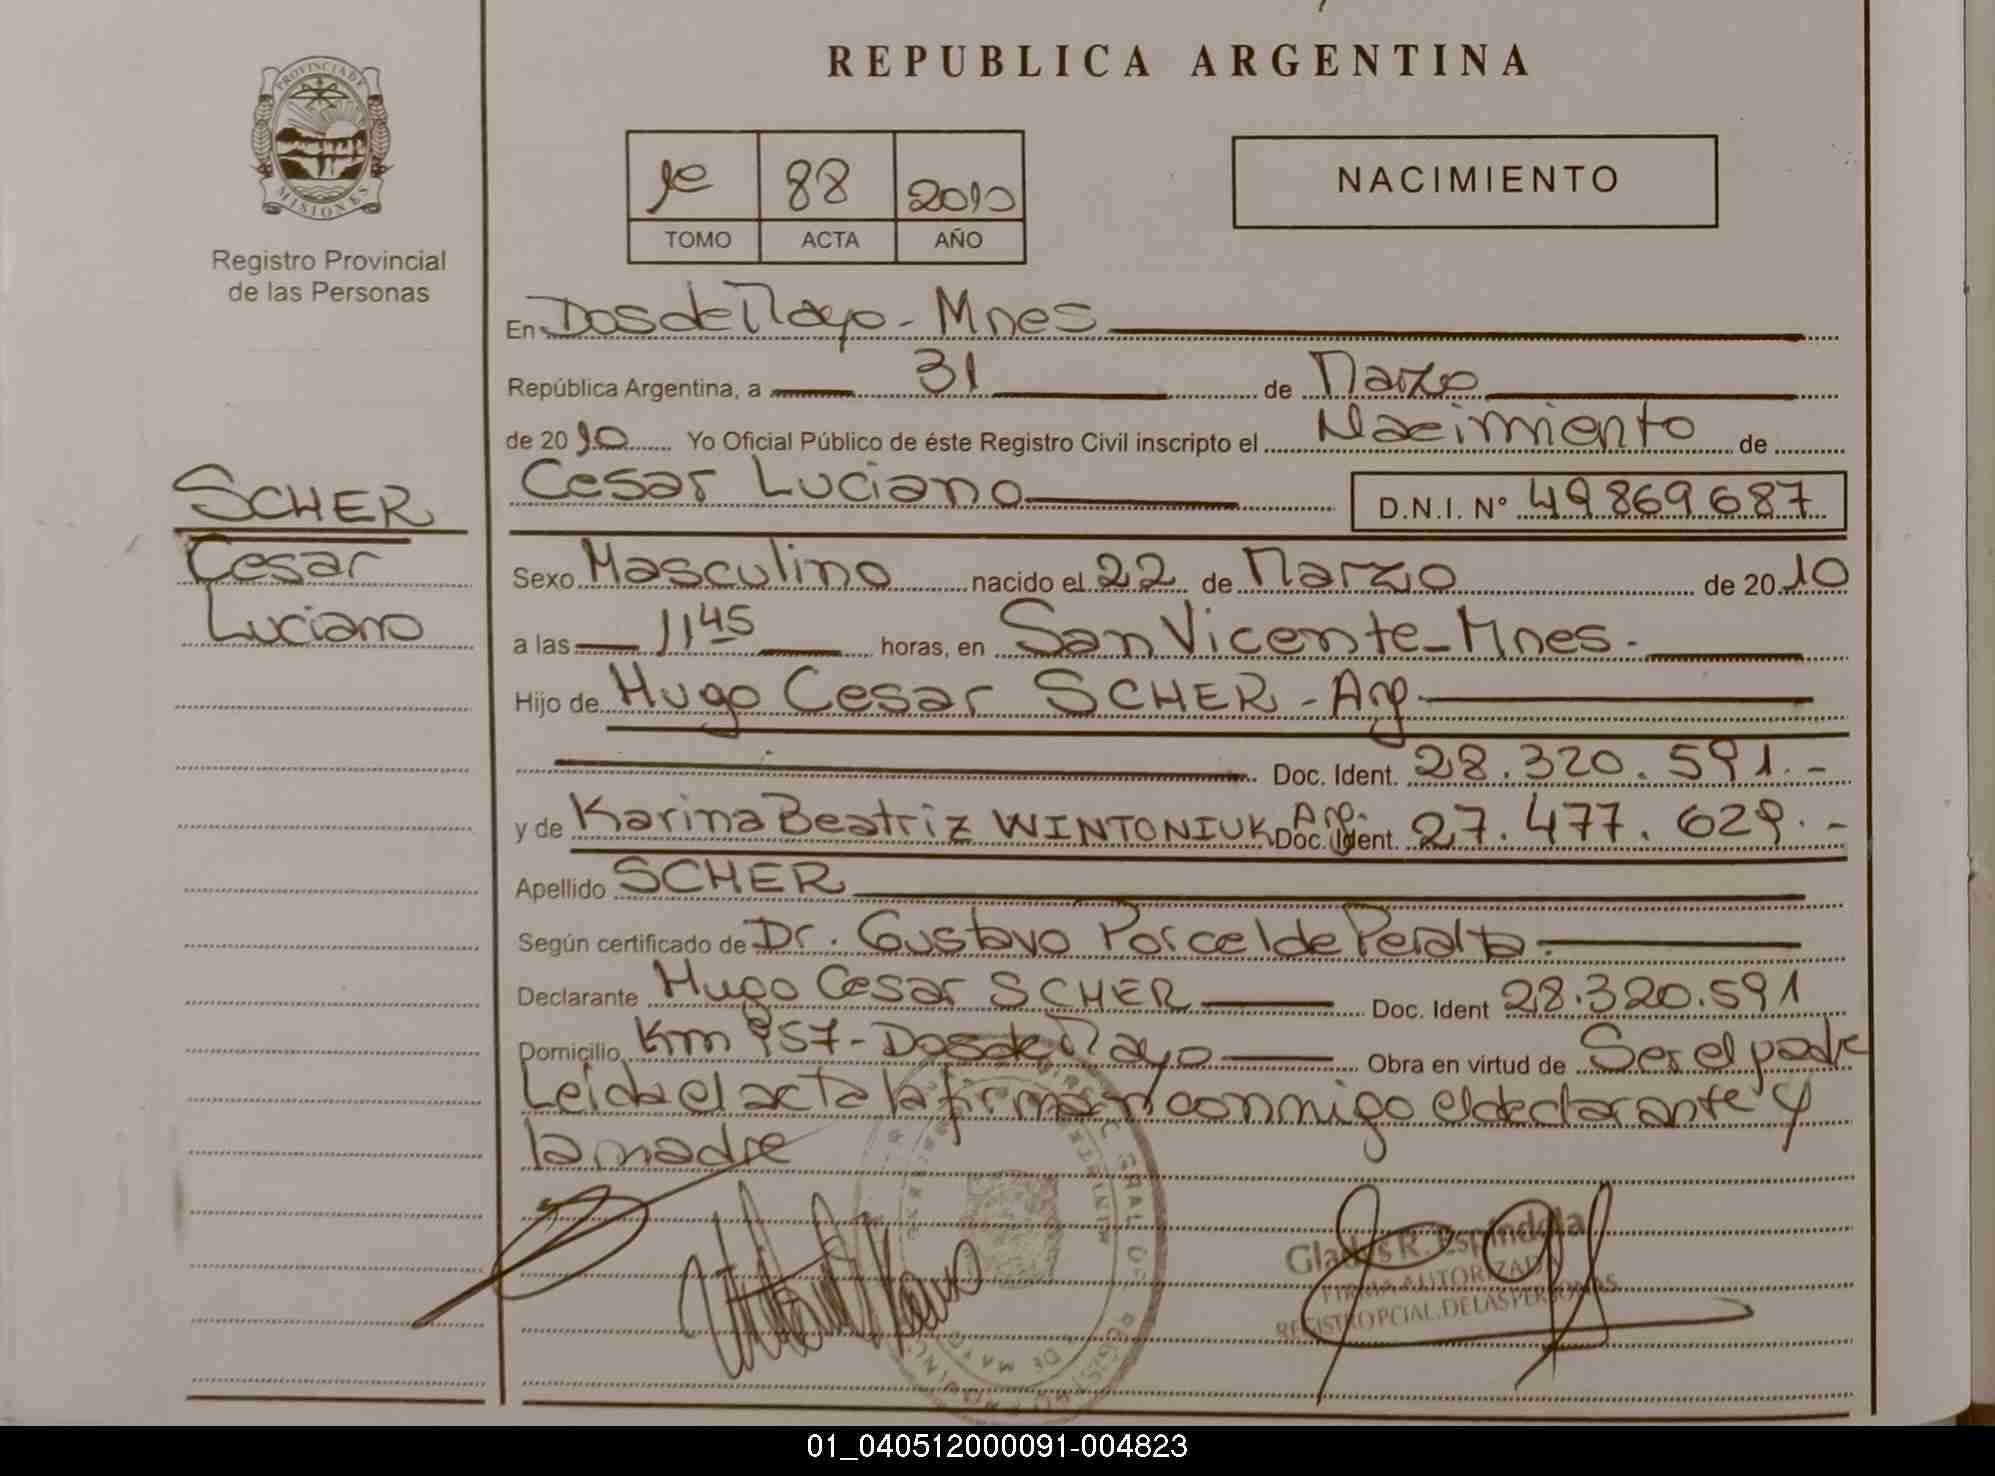 REPUBLICA ARGENTINA
PROVINCIA DE
MISIONES
Registro Provincial
de las Personas
1º 88 2010
TOMO ACTA AÑO
NACIMIENTO
En Dos de Mayo - Mnes
República Argentina, a 31 de Marzo
de 2010 Yo Oficial Público de éste Registro Civil inscripto el Nacimiento de
Cesar Luciano D.N.I. Nº 49869687
SCHER
Cesar
Luciano
Sexo Masculino nacido el 22 de Marzo de 2010
a las 11 45 horas, en San Vicente - Mnes.
Hijo de Hugo Cesar SCHER - Arg.
Doc. Ident. 28.320.591.-
y de Karina Beatriz WINTONIUK Arg. Doc. Ident. 27.477.629.-
Apellido SCHER
Según certificado de Dr. Gustavo Porcel de Peralta.
Declarante Hugo Cesar SCHER Doc. Ident 28.320.591
Domicilio Km 957 - Dos de Mayo Obra en virtud de Ser el padre
Leida el acta la firman conmigo el declarante y
la madre
Gladys R. Espindola
FIRMA AUTORIZADA
REGISTRO PCIAL. DE LAS PERSONAS
01_040512000091-004823